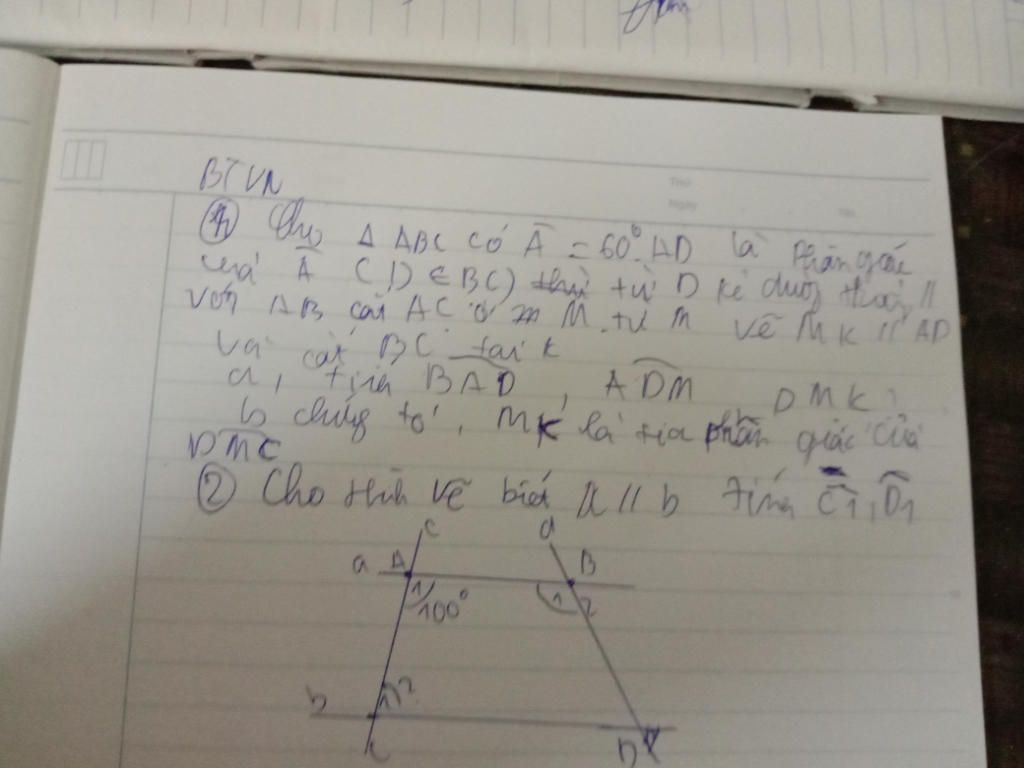 BTVN
① Cho Δ ABC có Â = 60° AD là phân giác
của Â (D ∈ BC) từ D kẻ đường thẳng //
với AB cắt AC ở M. từ M vẽ MK // AD
và cắt BC tại K
a, tính BAD, ADM DMK
b chứng tỏ, MK là tia phân giác của
DMC
② Cho hình vẽ biết a // b tính C1, D1
c d
a A B
1 100° 1 2
b 1 ?
C D